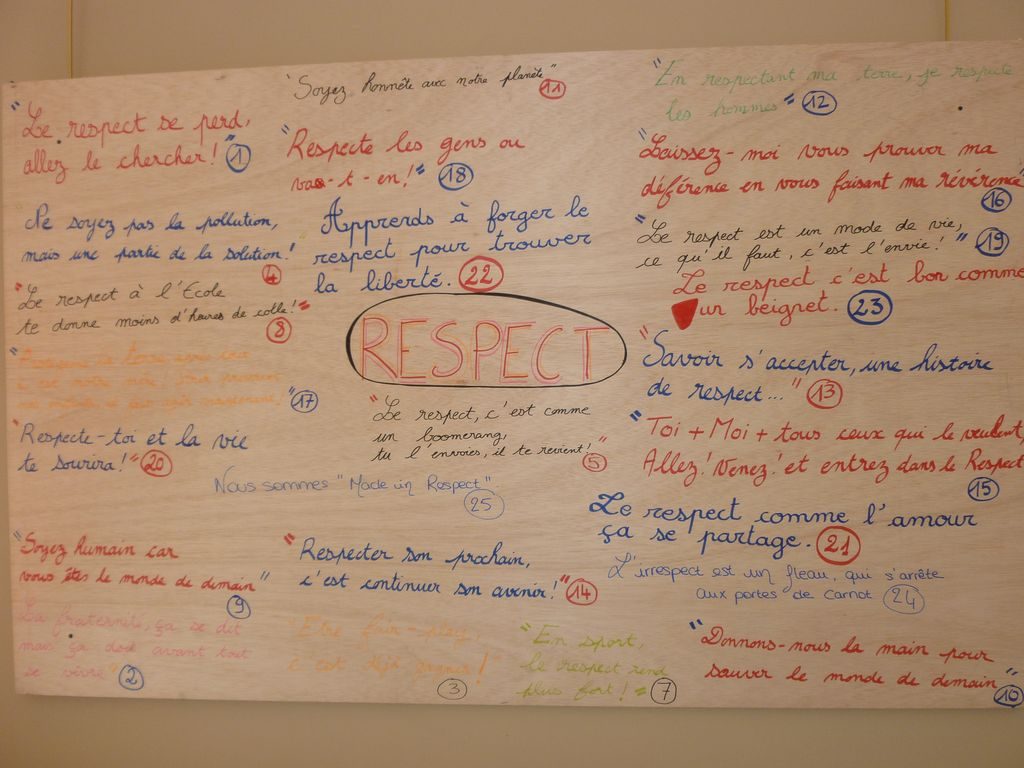 "Soyez honnête avec notre planète"
11
"Le respect se perd,
allez le chercher!" 1
"Respecte les gens ou
vas-t-en!" 18
Ne soyez pas la pollution,
mais une partie de la solution!"
4
Apprends à forger le
respect pour trouver
la liberté. 22
"Le respect à l'École
te donne moins d'heures de colle!"
8
RESPECT
17
"Respecte-toi et la vie
te sourira!" 20
"Le respect, c'est comme
un boomerang,
tu l'envoies, il te revient!"
5
Nous sommes "Made in Respect"
25
"Soyez humain car
vous êtes le monde de demain"
9
"Respecter son prochain,
c'est continuer son avenir!" 14
La fraternité, ça se dit
mais ça doit avant tout
se vivre" 2
Etre fair-play,
c'est déjà gagner!"
3
"En sport,
le respect rend
plus fort!" 7
"En respectant ma terre, je respecte
les hommes" 12
"Laissez-moi vous prouver ma
déférence en vous faisant ma révérence"
16
"Le respect est un mode de vie,
ce qu'il faut, c'est l'envie!" 19
Le respect c'est bon comme
un beignet. 23
"Savoir s'accepter, une histoire
de respect..." 13
"Toi + Moi + tous ceux qui le veulent,
Allez! Venez! et entrez dans le Respect
15
Le respect comme l'amour
ça se partage. 21
L'irrespect est un fleau, qui s'arrête
aux portes de Carnot 24
"Donnons-nous la main pour
sauver le monde de demain"
10